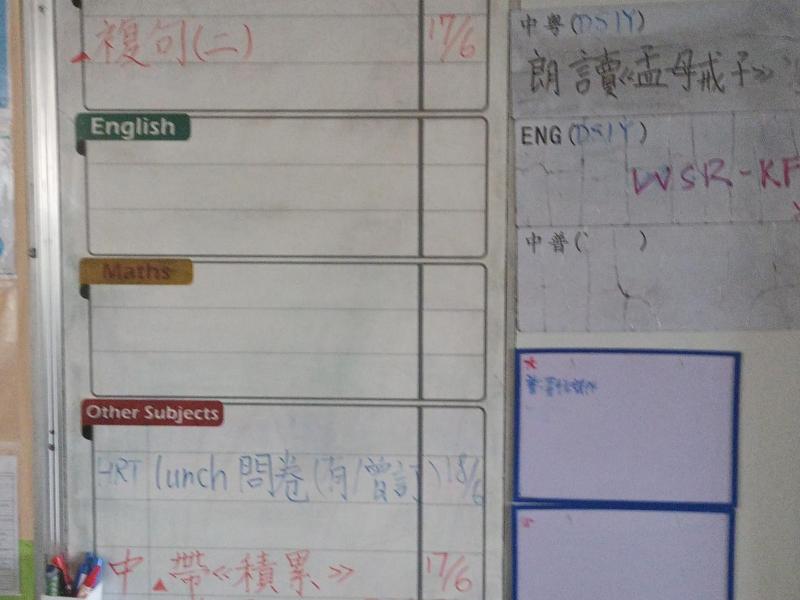 複句(二) 17/6
English
Maths
Other Subjects
HRT lunch 問卷(有/曾訂)18/6
中 帶《積累》 17/6
中粵(DS1Y)
朗讀《孟母戒子》
ENG(DS1Y)
WSR-KF
中普( )